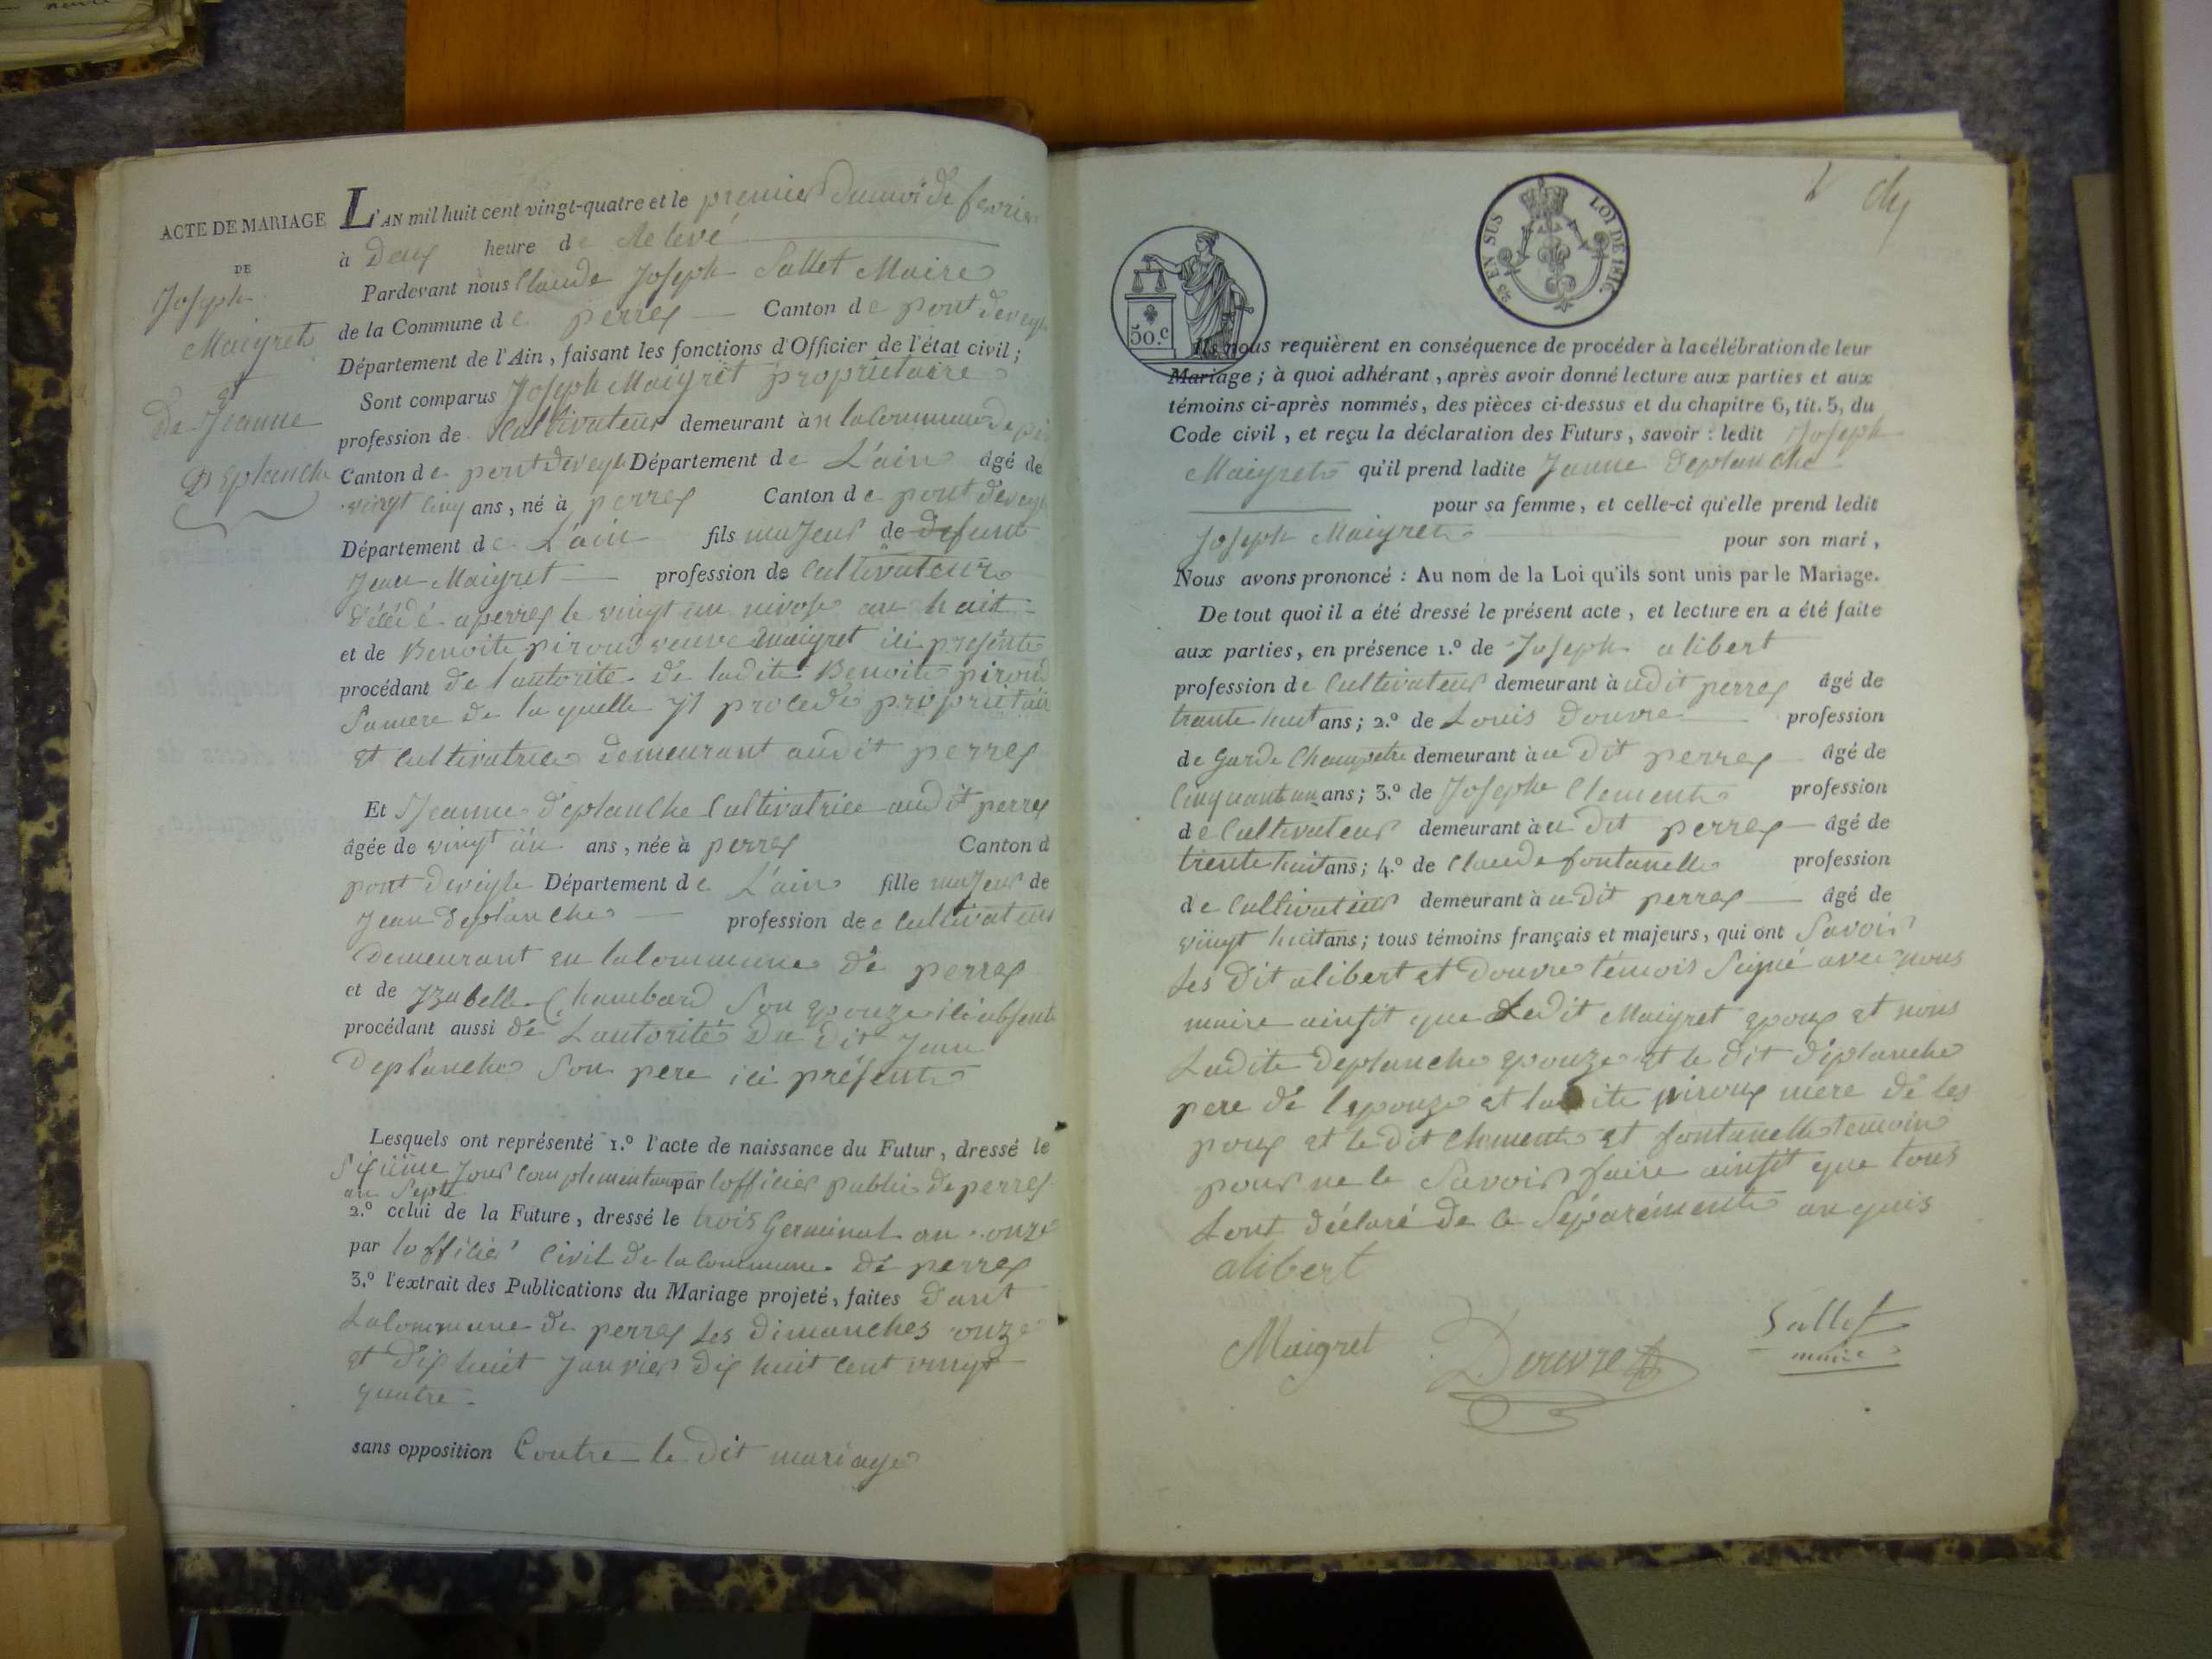 ACTE DE MARIAGE
DE
Joseph
Maigret
et
De Jeanne
Deplanche
L'AN mil huit cent vingt-quatre et le premier du moi de fevrier
à Deux heure de Relevé
Pardevant nous Claude Joseph Sallet Maire
de la Commune de perrex Canton de pont deveyle
Département de l'Ain, faisant les fonctions d'Officier de l'état civil;
Sont comparus Joseph Maigret propriétaire
profession de Cultivateur demeurant àn la Commune de
Canton de pont deveyle Département de L'ain âgé de
vingt cinq ans, né à perrex Canton de pont deveyle
Département de L'ain fils majeur de defunt
Jean Maigret profession de Cultivateur
décédé a perrex le vingt un nivose an huit
et de Benoite piroux veuve maigret ici présente
procédant de l'autorité de ladite Benoite piroux
Sa mere de la quelle Jl procede propriétaire
et Cultivatrice demeurant audit perrex
Et Jeanne deplanche Cultivatrice audit perrex
âgée de vingt un ans, née à perrex Canton d
pont deveyle Département de L'ain fille majeur de
Jean deplanche profession de e Cultivateur
demeurant en la Commune de perrex
et de Jzabelle Chambard Son epouze ici absente
procédant aussi de L'autorité Du dit Jean
Deplanche Son pere ici présent
Lesquels ont représenté 1.º l'acte de naissance du Futur, dressé le
Sixiéme Jour Complementaire par l'officier public de perrex
an Sept
2.º celui de la Future, dressé le trois Germinal an onze
par l'officier Civil de la Commune de perrex
3.º l'extrait des Publications du Mariage projeté, faites dant
La Commune de perrex Les Dimanches onze
et dix huit Janvier dix huit Cent vingt
quatre
sans opposition Contre le dit mariage
50.c
25 EN SUS LOI DE 1816.
Ils nous requièrent en conséquence de procéder à la célébration de leur
Mariage; à quoi adhérant, après avoir donné lecture aux parties et aux
témoins ci-après nommés, des pièces ci-dessus et du chapitre 6, tit. 5, du
Code civil, et reçu la déclaration des Futurs, savoir: ledit Joseph
Maigret qu'il prend ladite Janne Deplanche
pour sa femme, et celle-ci qu'elle prend ledit
Joseph Maigret pour son mari,
Nous avons prononcé: Au nom de la Loi qu'ils sont unis par le Mariage.
De tout quoi il a été dressé le présent acte, et lecture en a été faite
aux parties, en présence 1.º de Joseph alibert
profession de Cultivateur demeurant àudit perrex âgé de
trante huit ans; 2.º de Louis Douvre profession
de Garde Champetre demeurant àu dit perrex âgé de
Cinquant un ans; 3.º de Josephe Clement profession
de Cultivateur demeurant àu dit perrex âgé de
trente huit ans; 4.º de Claude fontanelle profession
de Cultivateur demeurant à u dit perrex âgé de
vingt huit ans; tous témoins français et majeurs, qui ont Savoir
Les dit alibert et Douvre témois Signé avec nous
maire ainsit que Ledit Maigret epoux et nons
Ladite Deplanche epouze et le dit deplanche
pere de l'epouze et ladite piroux mere de les
poux et le dit Clement et fontanelle temoin
pour ne le Savoir faire ainsit que tous
Lont déclaré de ce Séparément anquis
alibert
Maigret Douvre Sallet
maire